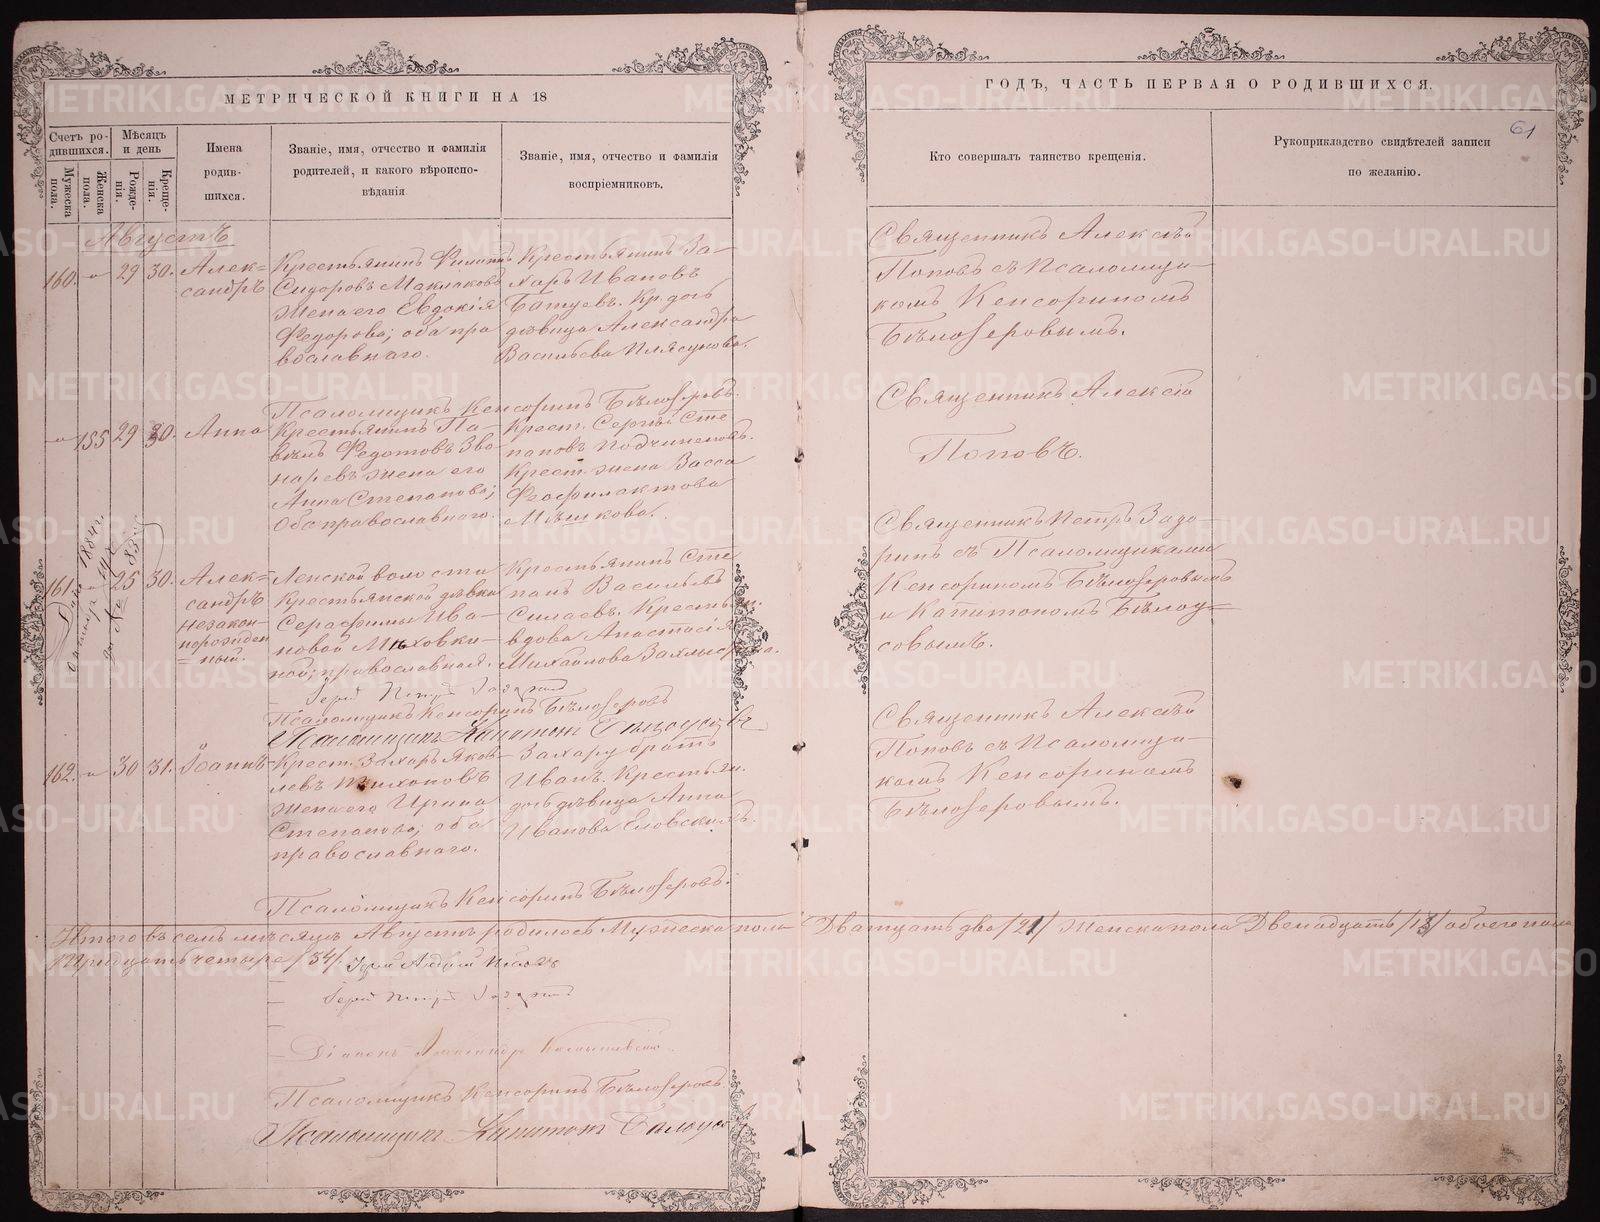 МЕТРИЧЕСКОЙ КНИГИ НА 18
ГОДЪ, ЧАСТЬ ПЕРВАЯ О РОДИВШИХСЯ.
61
Счетъ ро-
дившихся.
Мужеска
пола.
Женска
пола.
Мѣсяцъ
и день
Рожде-
нія.
Креще-
нія.
Имена
родив-
шихся.
Званіе, имя, отчество и фамилія
родителей, и какого вѣроиспо-
вѣданія
Званіе, имя, отчество и фамилія
воспріемниковъ.
Кто совершалъ таинство крещенія.
Рукоприкладство свидѣтелей записи
по желанію.
Августъ
160. - 29 30.
Алек=
сандръ
Крестьянинъ
Сидоровъ Маклаковъ
Жена его Евдокія
Федорова; оба пра
вославнаго.
Крестьянинъ За-
харъ Ивановъ
Батуевъ. Кр. дочь
дѣвица Александра
Васильева Плясунова.
Священникъ Алексѣй
Поповъ съ Псаломщи-
комъ Кенсориномъ
Бѣлозеровымъ.
Псаломщикъ Кенсоринъ Бѣлозеровъ.
- 155 29 30.
Анна
Крестьянинъ Па-
велъ Федотовъ Зво-
наревъ жена его
Анна Степанова;
Оба православнаго.
Крест. Сергѣй Сте
пановъ Подчиненовъ.
Крест. жена Васса
Феофилактова
Мѣшкова.
Священникъ Алексій
Поповъ.
161. - 25 30.
Алек=
сандръ
незакон
норожден
=ный.
Ленской волости
Крестьянской дѣвки
Серафимы Ива-
новой Мѣховки-
ной; православная.
Крестьянинъ Сте
панъ Васильевъ
Силаевъ. Крестьян.
вдова Анастасія
Михайлова
Священникъ Петръ Заго-
ринъ съ Псаломщиками
Кенсориномъ Бѣлозеровымъ
и Капитономъ Бѣлоу=
совымъ.
Псаломщикъ Кенсоринъ Бѣлозеровъ
Псаломщикъ Капитонъ Бѣлоусовъ
162. - 30 31.
Іоаннъ
Крест. Захаръ Яков-
левъ Тихоновъ
Жена его Ирина
Степанова; оба
православнаго.
Захару братъ
Иванъ. Крестьян.
дочь дѣвица Анна
Иванова Еловскихъ.
Священникъ Алексѣй
Поповъ съ Псаломщи-
комъ Кенсориномъ
Бѣлозеровымъ.
Псаломщикъ Кенсоринъ Бѣлозеровъ.
Итого въ семъ мѣсяцѣ Августѣ родилось Мужеска пола Двадцать два /21/ Женска пола Двенадцать /13/ обоего пола
Тридцать четыре /34/.
Псаломщикъ Кенсоринъ Бѣлозеровъ.
Псаломщикъ Капитонъ Бѣлоусовъ
METRIKI.GASO-URAL.RU